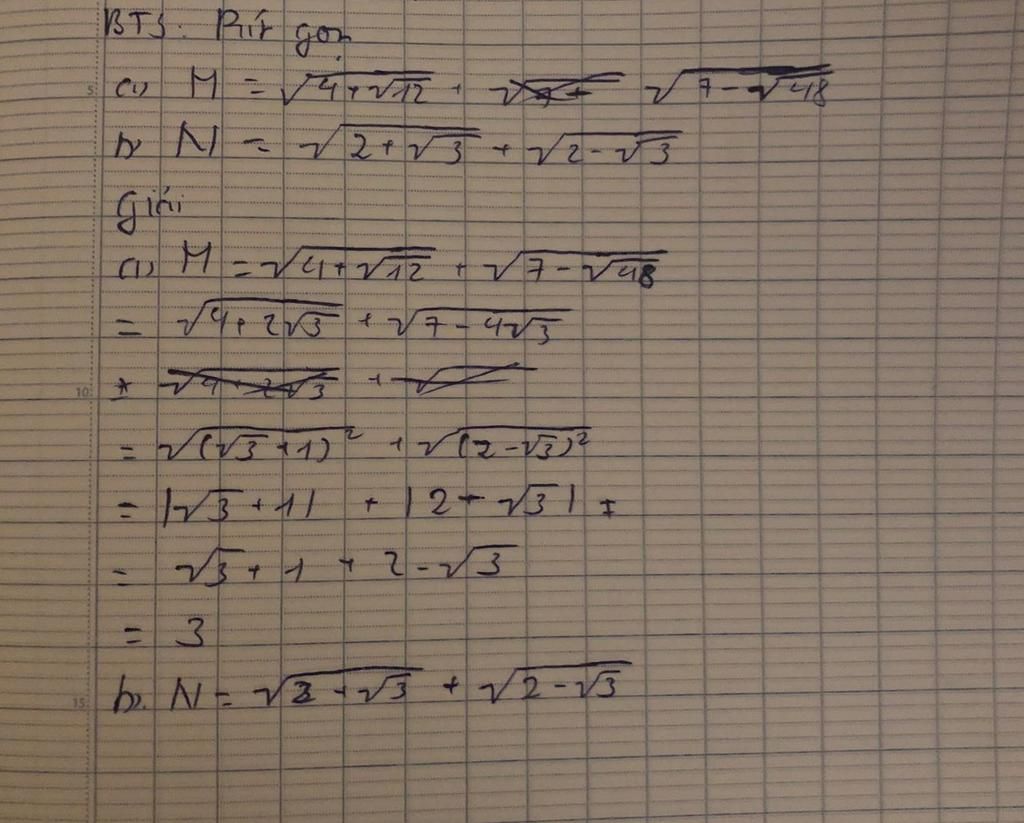 BT3. Rút gọn
a) M = √(4+√12) + √(7-√48)
b, N = √(2+√3) + √(2-√3)
Giải
a) M = √(4+√12) + √(7-√48)
= √(4+2√3) + √(7-4√3)
= √((√3+1)²) + √((2-√3)²)
= |√3+1| + |2-√3|
= √3+1 + 2-√3
= 3
b. N = √(2+√3) + √(2-√3)
5
10
15